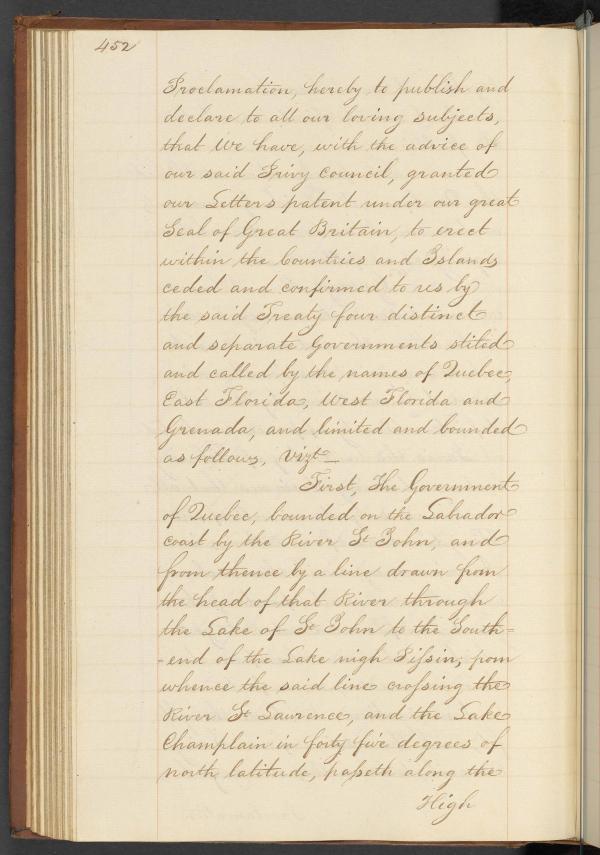 452
Proclamation, hereby to publish and
declare to all our loving subjects,
that We have, with the advice of
our said Privy Council, granted
our Letters patent under our great
Seal of Great Britain, to erect
within the Countries and Islands
ceded and confirmed to us by
the said Treaty four distinct
and separate Governments stiled
and called by the names of Quebec,
East Florida, West Florida and
Grenada, and limited and bounded
as follows, Vizt_
First, The Government
of Quebec, bounded on the Labrador
coast by the River St John, and
from thence by a line drawn from
the head of that River through
the Lake of St John to the South=
-end of the Lake nigh Pissin; from
whence the said line crossing the
River St Laurence, and the Lake
Champlain in forty five degrees of
north latitude, passeth along the
High